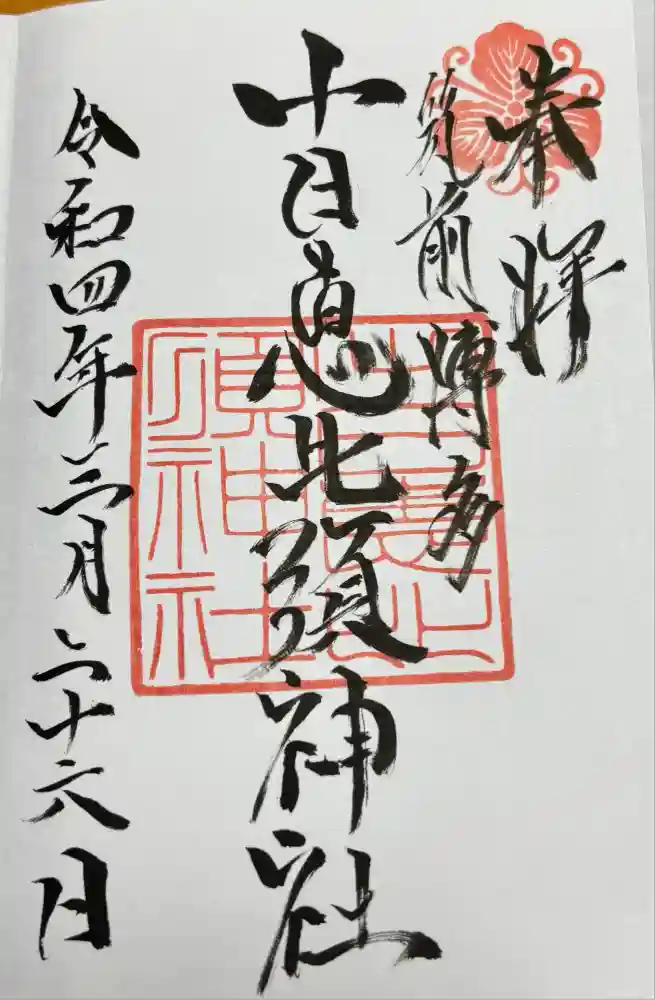 奉拝
筑前博多
十日恵比須神社
令和四年三月二十六日